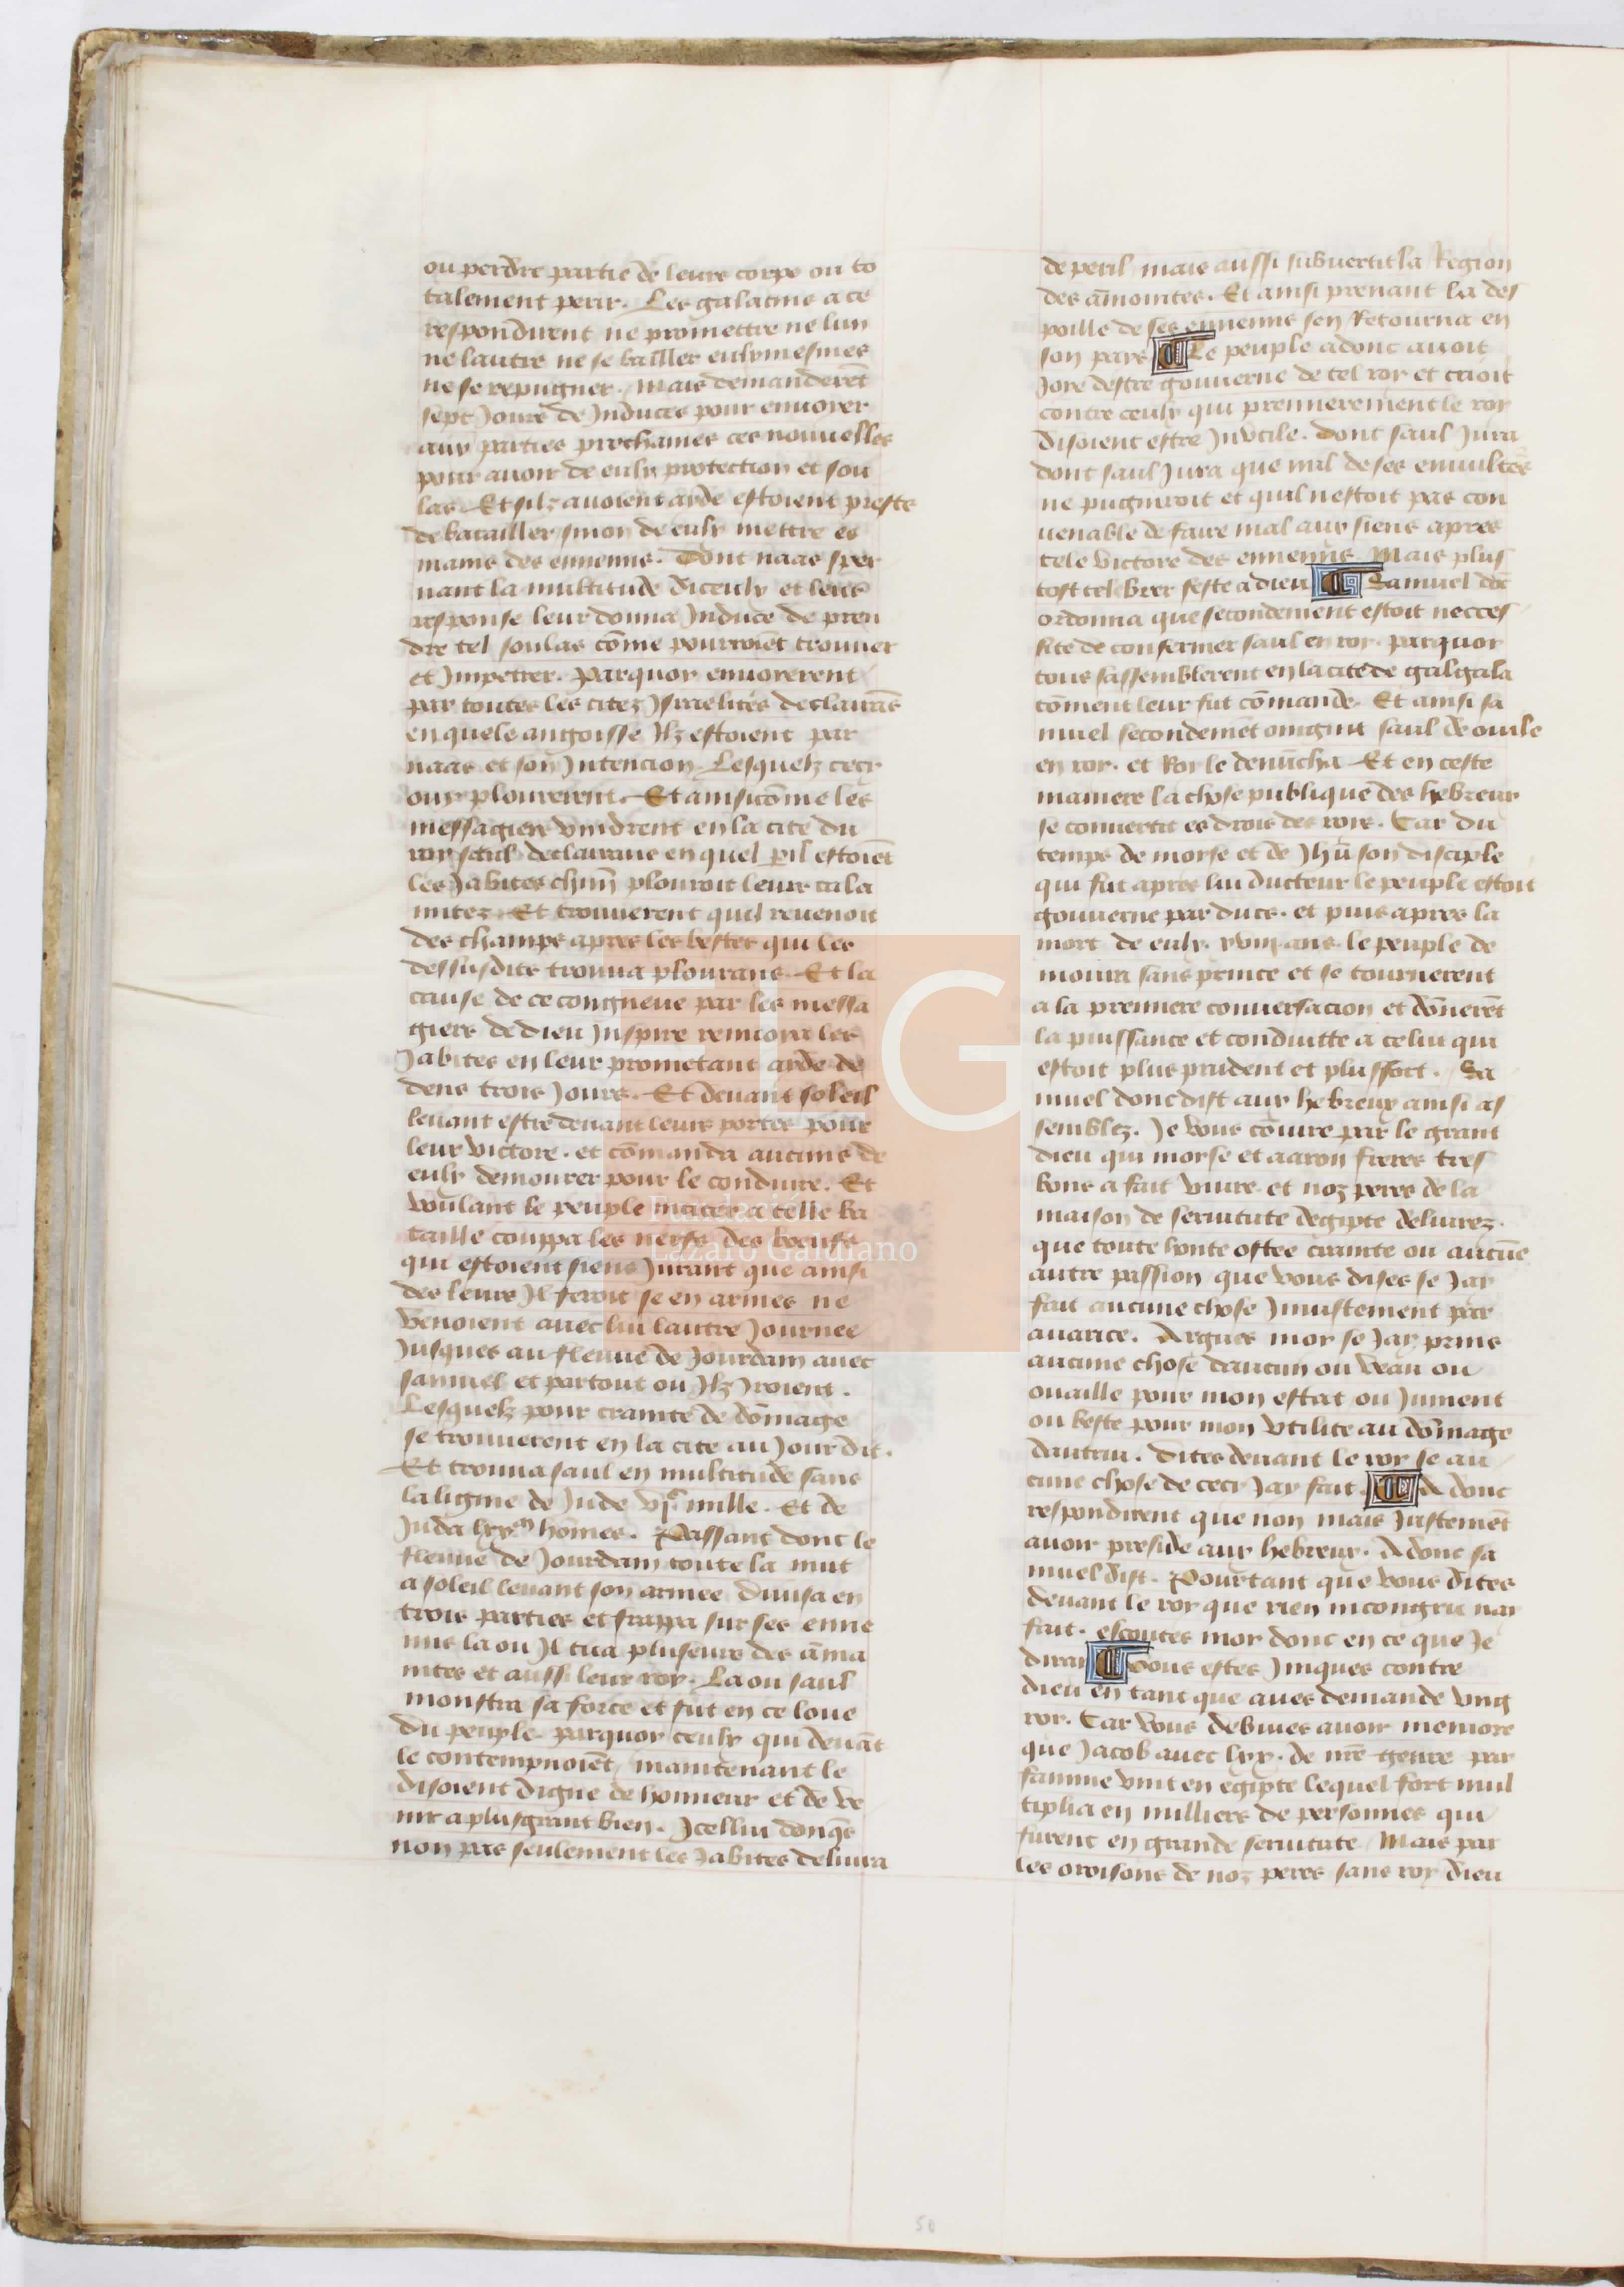 ou perdre partie de leurs corps ou to
talement perir. Les galatins a ce
respondirent ne promettre ne lun
ne lautre ne se bailler eulxmesmes
ne se repugner. Mais demanderēt
sept Jours de Induces pour enuoyer
aux parties prochaines ces nouuelles
pour auoir de eulx protection et sou
las. Et silz auoient ayde estoient prests
de batailler sinon de eulx mettre es
mains des ennemis. Dont naas sper
nant la multitude diceulx et leur
response leur donna Induce de pren
dre tel soulas cōme pourroiēt trouuer
et Impetrer. Parquoy enuoyerent
par toutes les citez Israelites declairās
en quele angoisse Ilz estoient par
naas et son Intencion. Lesquelz cecy
ouy plourerent. Et ainsi cōme les
messagiers vindrent en la cite du
roy saul declairans en quel pil estoiēt
les Jabites chūn plouroit leur cala
mitez. Et trouuerent quil reuenoit
des champs apres les bestes qui les
dessusdits trouua plourans. Et la
cause de ce congneue par les messa
giers de dieu Inspire renuoya les
Jabites en leur prometant ayde de
dens trois Jours. Et deuant soleil
leuant estre deuant leurs portes pour
leur victore. et cōmanda aucuns de
eulx demourer pour le conduire. Et
voulant le peuple inciter a telle ba
taille couppa les nerfs des boeufs
qui estoient siens Jurant que ainsi
des leurs Il feroit se en armes ne
venoient auec lui lautre Journee
Jusques au fleuue de Jourdain auec
samuel et partout ou Ilz Iroient.
Lesquelz pour crainte de dōmage
se trouuerent en la cite au Jour dit.
Et trouua saul en multitude sans
la ligne de Jude vijᶜ mille. Et de
Juda lxxᵐ hōmes. Passant donc le
fleuue de Jourdain toute la nuit
a soleil leuant son armee diuisa en
trois parties et frappa sur ses enne
mis la ou Il tua pluseurs des āmo
nites et aussi leur roy. La ou saul
monstra sa force et fut en ce loue
du peuple. parquoy ceulx qui deuāt
le contempnoiēt / maintenant le
disoient digne de honneur et de ve
nir a plusgrant bien. Icellui donqs
non pas seulement les Jabites deliura
de peril mais aussi subuertit la Region
des āmonites. Et ainsi prenant la des
poille de ses ennemis sen Retourna en
son pays Le peuple adonc auoit
Joye destre gouuerne de tel roy et crioit
contre ceulx qui premierement le roy
disoient estre Inutile. dont saul Jura
dont saul Jura que nul de ses
ne pugniroit et quil nestoit pas con
uenable de faire mal aux siens apres
tele victore des ennemis. Mais plus
tost celebrer feste a dieu Samuel dōc
ordonna que secondement estoit necces
site de confermer saul en roy. parquoy
tous sassemblerent en la cite de galgala
cōment leur fut cōmande. Et ainsi sa
muel secondemēt oingnit saul de ouile
en roy. et Roy le denūcha Et en ceste
maniere la chose publique des hebreux
se conuertit es drois des roys. Car du
temps de moyse et de Jhū son disciple
qui fut apres lui ducteur le peuple estoit
gouuerne par ducs. et puis apres la
mort de eulx. xviij ans. le peuple de
moura sans prince et se tournerent
a la premiere conuersacion et dōnerēt
la puissance et conduitte a celui qui
estoit plus prudent et plus fort. Sa
muel donc dist aux hebreux ainsi as
semblez. Je vous cōiure par le grant
dieu qui moyse et aaron freres tres
bons a fait viure. et noz peres de la
maison de seruitute degipte deliurez.
que toute honte ostee crainte ou aucūe
autre passion / que vous dises se Jay
fait aucune chose Iniustement par
auarice. Argues moy se Jay prins
aucune chose daucun ou veau ou
ouaille pour mon estat ou Jument
ou beste pour mon vtilite au dōmage
dautrui. dites deuant le roy se au
cune chose de cecy Jay fait. Adonc
respondirent que non mais Justemēt
auoir preside aux hebreux. Adonc sa
muel dist. Pourtant que vous dites
deuant le roy que rien incongru nay
fait. escoutes moy donc en ce que Je
diray Vous estes Iniques contre
dieu en tant que aues demande vng
roy. Car vous debuies auoir memore
que Jacob auec lxx. de nrē genre par
famine vint en egipte lequel fort mul
tiplia en milliers de personnes qui
furent en grande seruitute. Mais par
les oroisons de noz peres sans roy dieu
LG
Fundación
Lázaro Galdiano
50